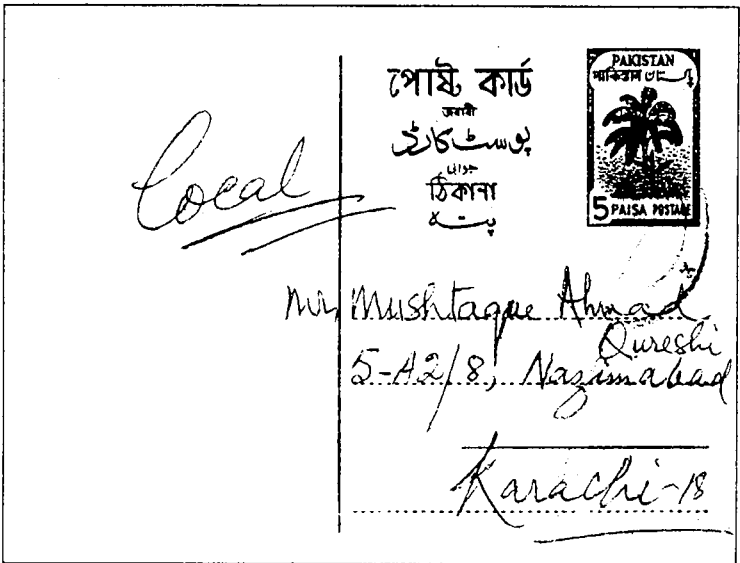 পোষ্ট কার্ড
জবাবী
پوسٹ کارڈ
جوابی
ঠিকানা
پتہ
PAKISTAN
পাকিস্তান پاکستان
5 PAISA POSTAGE
Local
Mr. Mushtaque Ahmad
Qureshi
5-A2/8, Nazimabad
Karachi-18